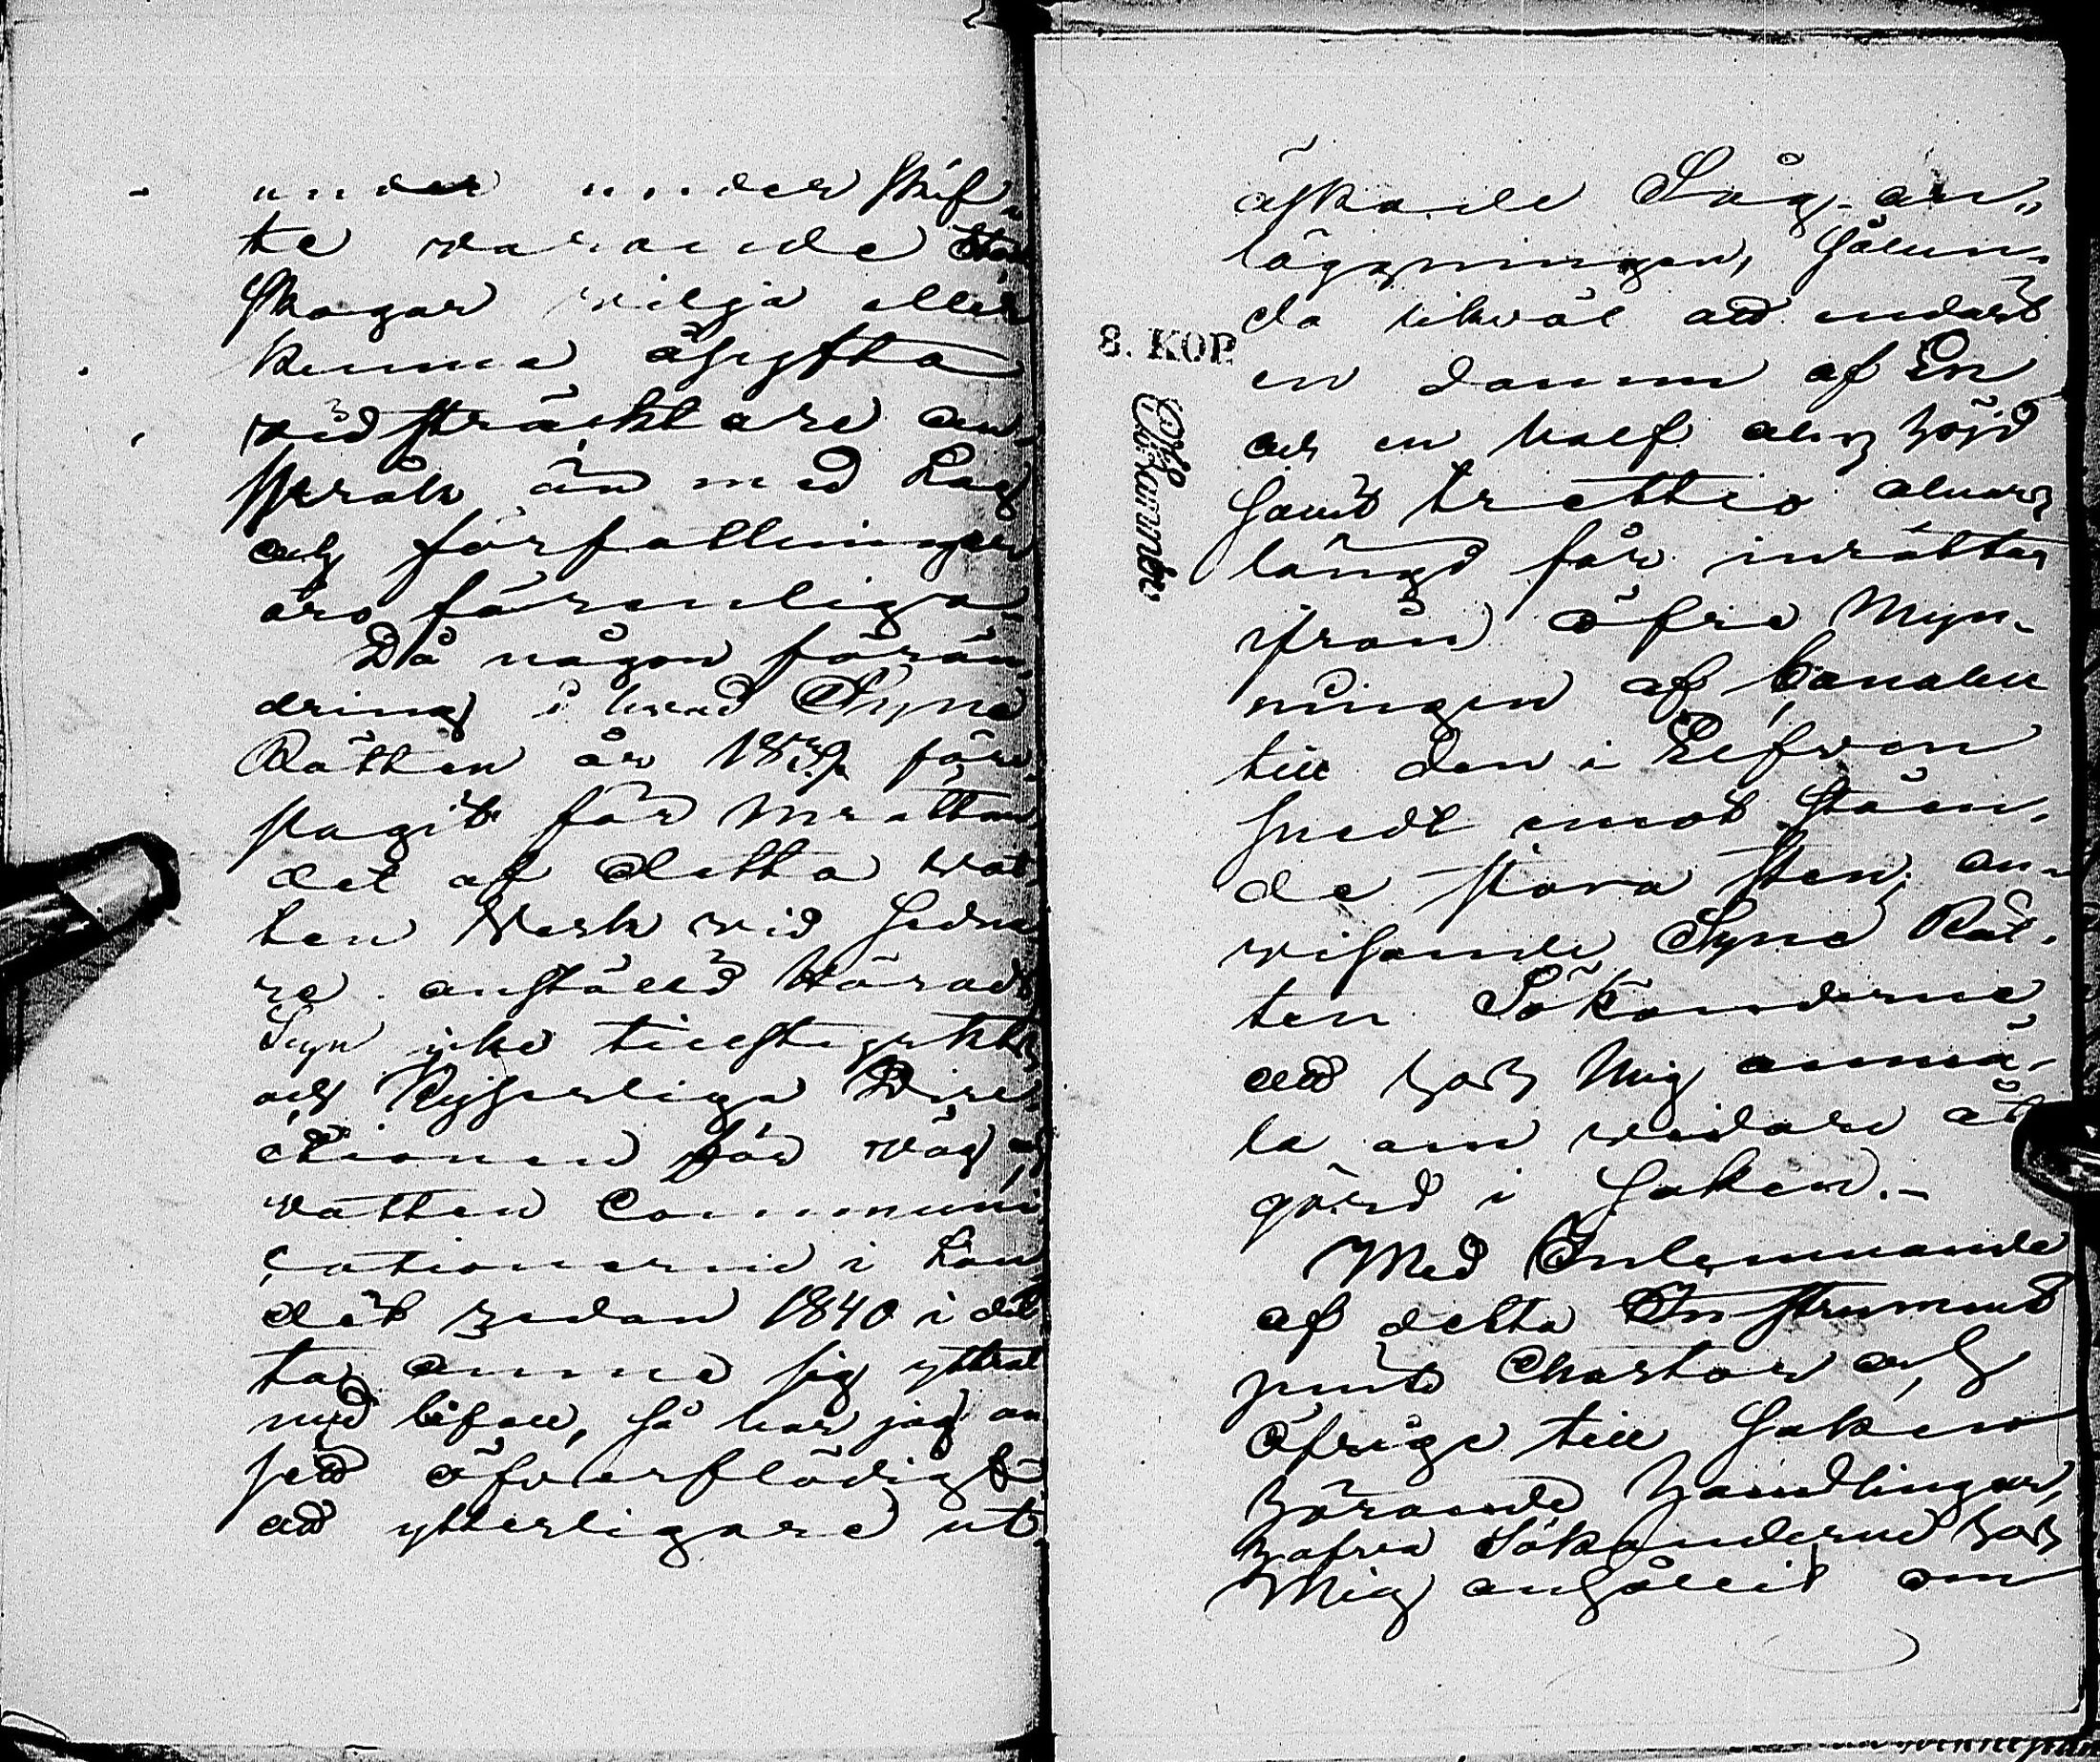 under under skif-
te varande Stor
skogar vilja eller
kunna åsyfta
vidsträcktare an-
språk än med Lag
och författningar
äro förenliga.
Då någon förän-
dring i hvad Syne
Rätten år 1839 före-
slagit för Inrättan-
det af detta vat-
ten Verk vid sedna-
re anstäld Härads
Syn icke tillstyrkts
och Kejserliga Dire-
ctionen för väg och
vatten Communi-
cationerne i Lan-
det redan 1840 i det-
ta ämne sig yttrat
med bifall, så har jag an-
sett öfverflödigt
att ytterligare ut
äskade Såg-an-
läggningen, sålun-
da likväl att endast
en damm af En
och en half aln höjd
samt trettio alnars
längd får inrättas
ifrån öfre Myn-
ningen af Canalen
till den i Elfven
snedt emot ståen-
de stora sten; an-
visande Syne Rät-
ten Sökanderne
att hos Mig anmä-
la om vidare åt-
gärd i saken.-
Med Inlemnande
af detta Instrument
jemte Chartor och
öfrige till saken
hörande handlingar,
hafva Sökanderne hos
Mig anhållit om
8. KOP.